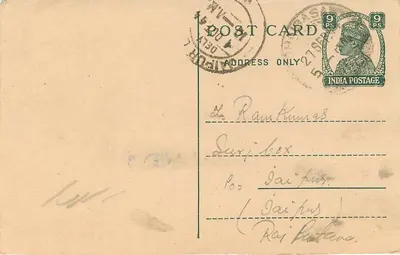 POST CARD
ADDRESS ONLY
9 PS. 9 PS.
INDIA POSTAGE
JAIPUR
DELY
27 SEP
Ramkumar
Surjbox
Po: Jaipur.
(Jaipur)
Rajputana.